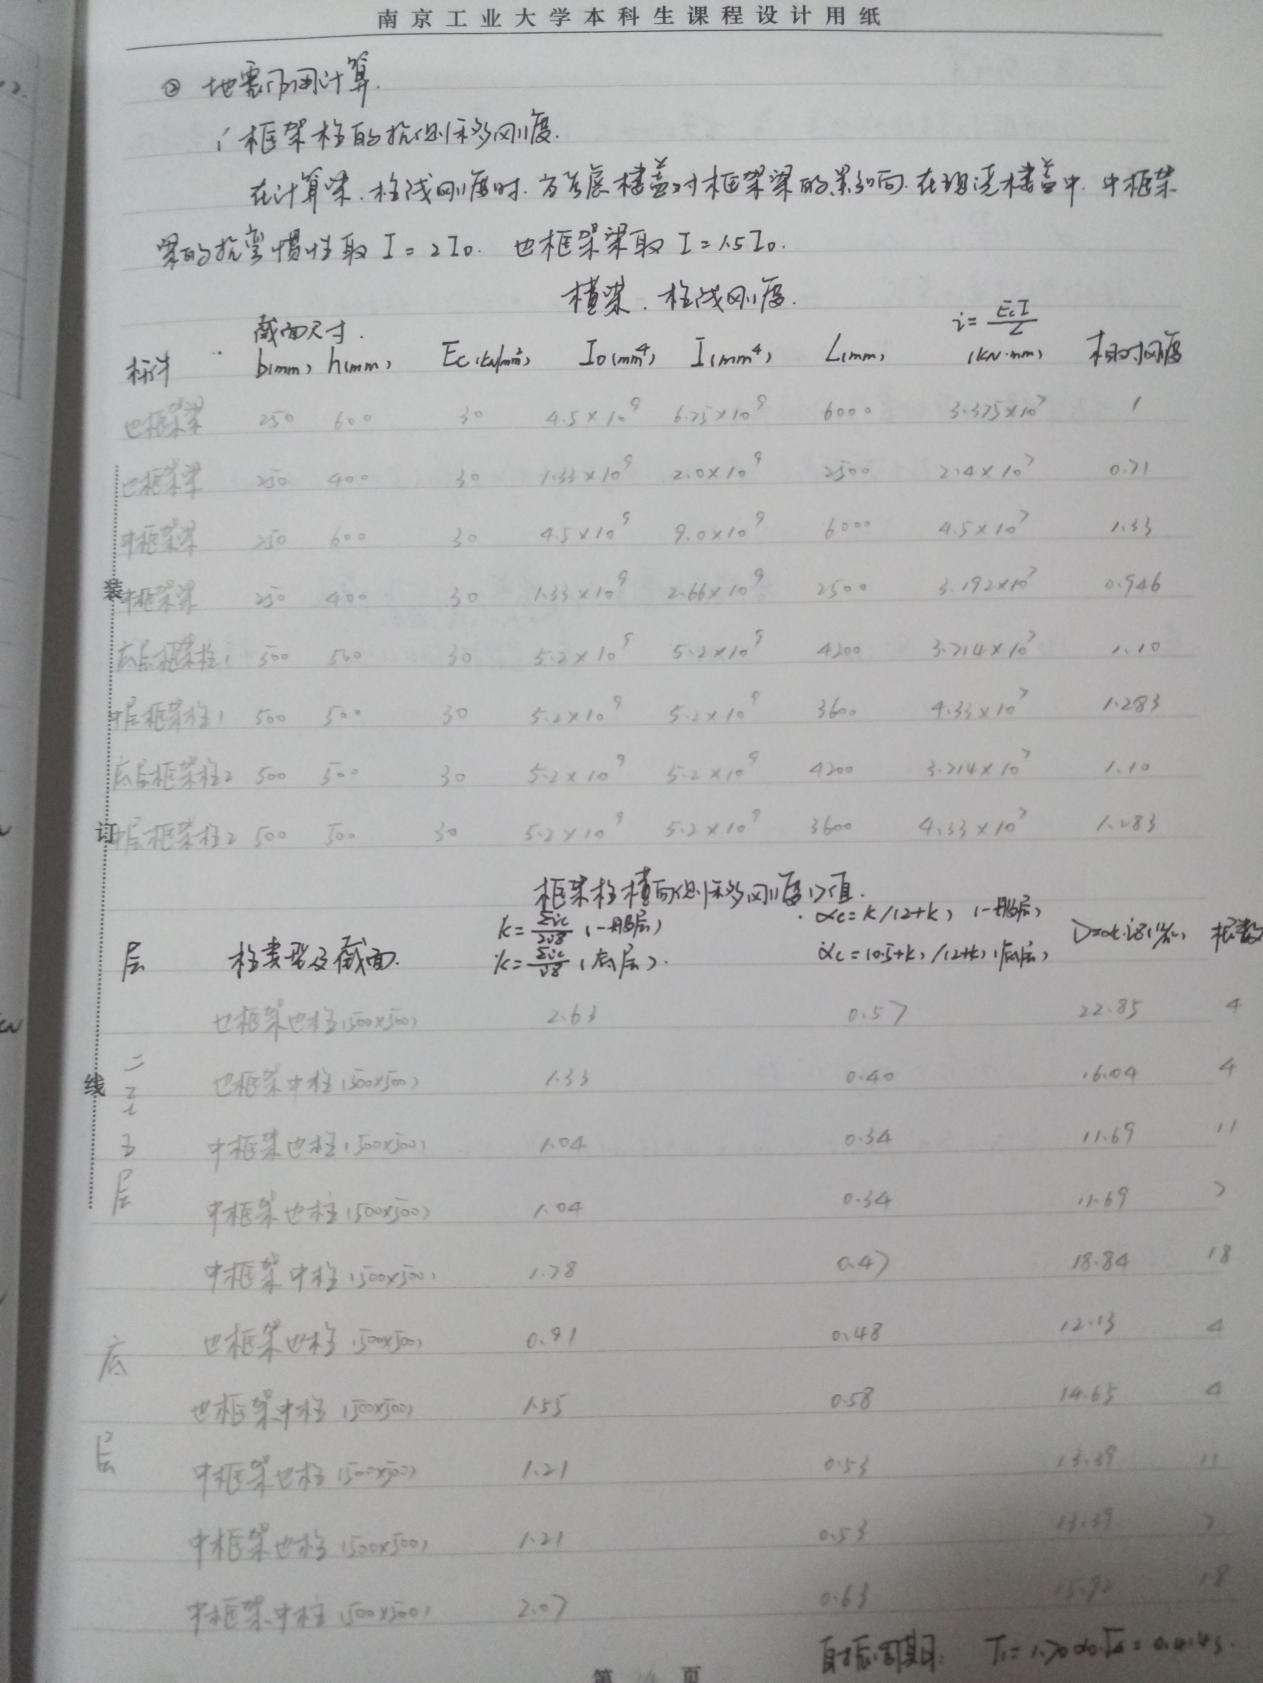 南京工业大学本科生课程设计用纸
② 地震作用计算.
1 框架柱的抗侧移刚度.
在计算梁.柱线刚度时.应考虑楼盖对框架梁的影响.在现浇楼盖中.中框架
梁的抗弯惯性取 I = 2I0. 边框架梁取 I = 1.5I0.
横梁.柱线刚度.
杆件 截面尺寸. b(mm) h(mm) Ec(kN/mm²) I0(mm⁴) I(mm⁴) L(mm) i=EcI/L (kN·mm) 相对刚度
边框架梁 250 600 30 4.5×10⁹ 6.75×10⁹ 6000 3.375×10⁷ 1
边框架梁 250 400 30 1.33×10⁹ 2.0×10⁹ 2500 2.4×10⁷ 0.71
中框架梁 250 600 30 4.5×10⁹ 9.0×10⁹ 6000 4.5×10⁷ 1.33
中框架梁 250 400 30 1.33×10⁹ 2.66×10⁹ 2500 3.192×10⁷ 0.946
底层框架柱1 500 500 30 5.2×10⁹ 5.2×10⁹ 4200 3.714×10⁷ 1.10
中层框架柱1 500 500 30 5.2×10⁹ 5.2×10⁹ 3600 4.33×10⁷ 1.283
底层框架柱2 500 500 30 5.2×10⁹ 5.2×10⁹ 4200 3.714×10⁷ 1.10
中层框架柱2 500 500 30 5.2×10⁹ 5.2×10⁹ 3600 4.33×10⁷ 1.283
装
订
线
框架柱横向侧移刚度D值.
层 柱类型及截面. k=Σic/2iz (一般层) αc=k/(2+k) (一般层) 根数
k=Σic/iz (底层). αc=(0.5+k)/(2+k) (底层)
二
三
五
层
边框架边柱(500×500) 2.63 0.57 22.85 4
边框架中柱(500×500) 1.33 0.40 16.04 4
中框架边柱(500×500) 1.04 0.34 11.69 11
中框架边柱(500×500) 1.04 0.34 11.69 7
中框架中柱(500×500) 1.78 0.47 18.84 18
底
层
边框架边柱(500×500) 0.91 0.48 12.13 4
边框架中柱(500×500) 1.55 0.58 14.65 4
中框架边柱(500×500) 1.21 0.53 13.39 11
中框架边柱(500×500) 1.21 0.53 13.39 7
中框架中柱(500×500) 2.07 0.63 15.92 18
自振周期:
第 14 页